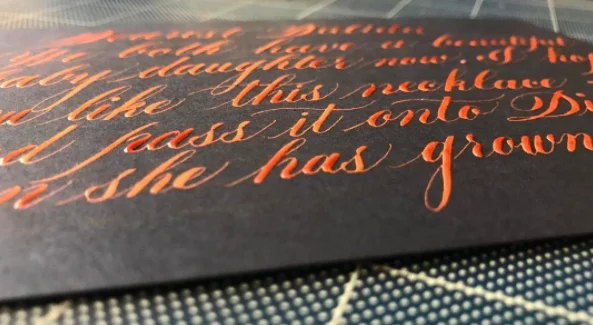 both have a beautiful
baby daughter now. I hop
like this necklace
d pass it onto Di
n she has grown